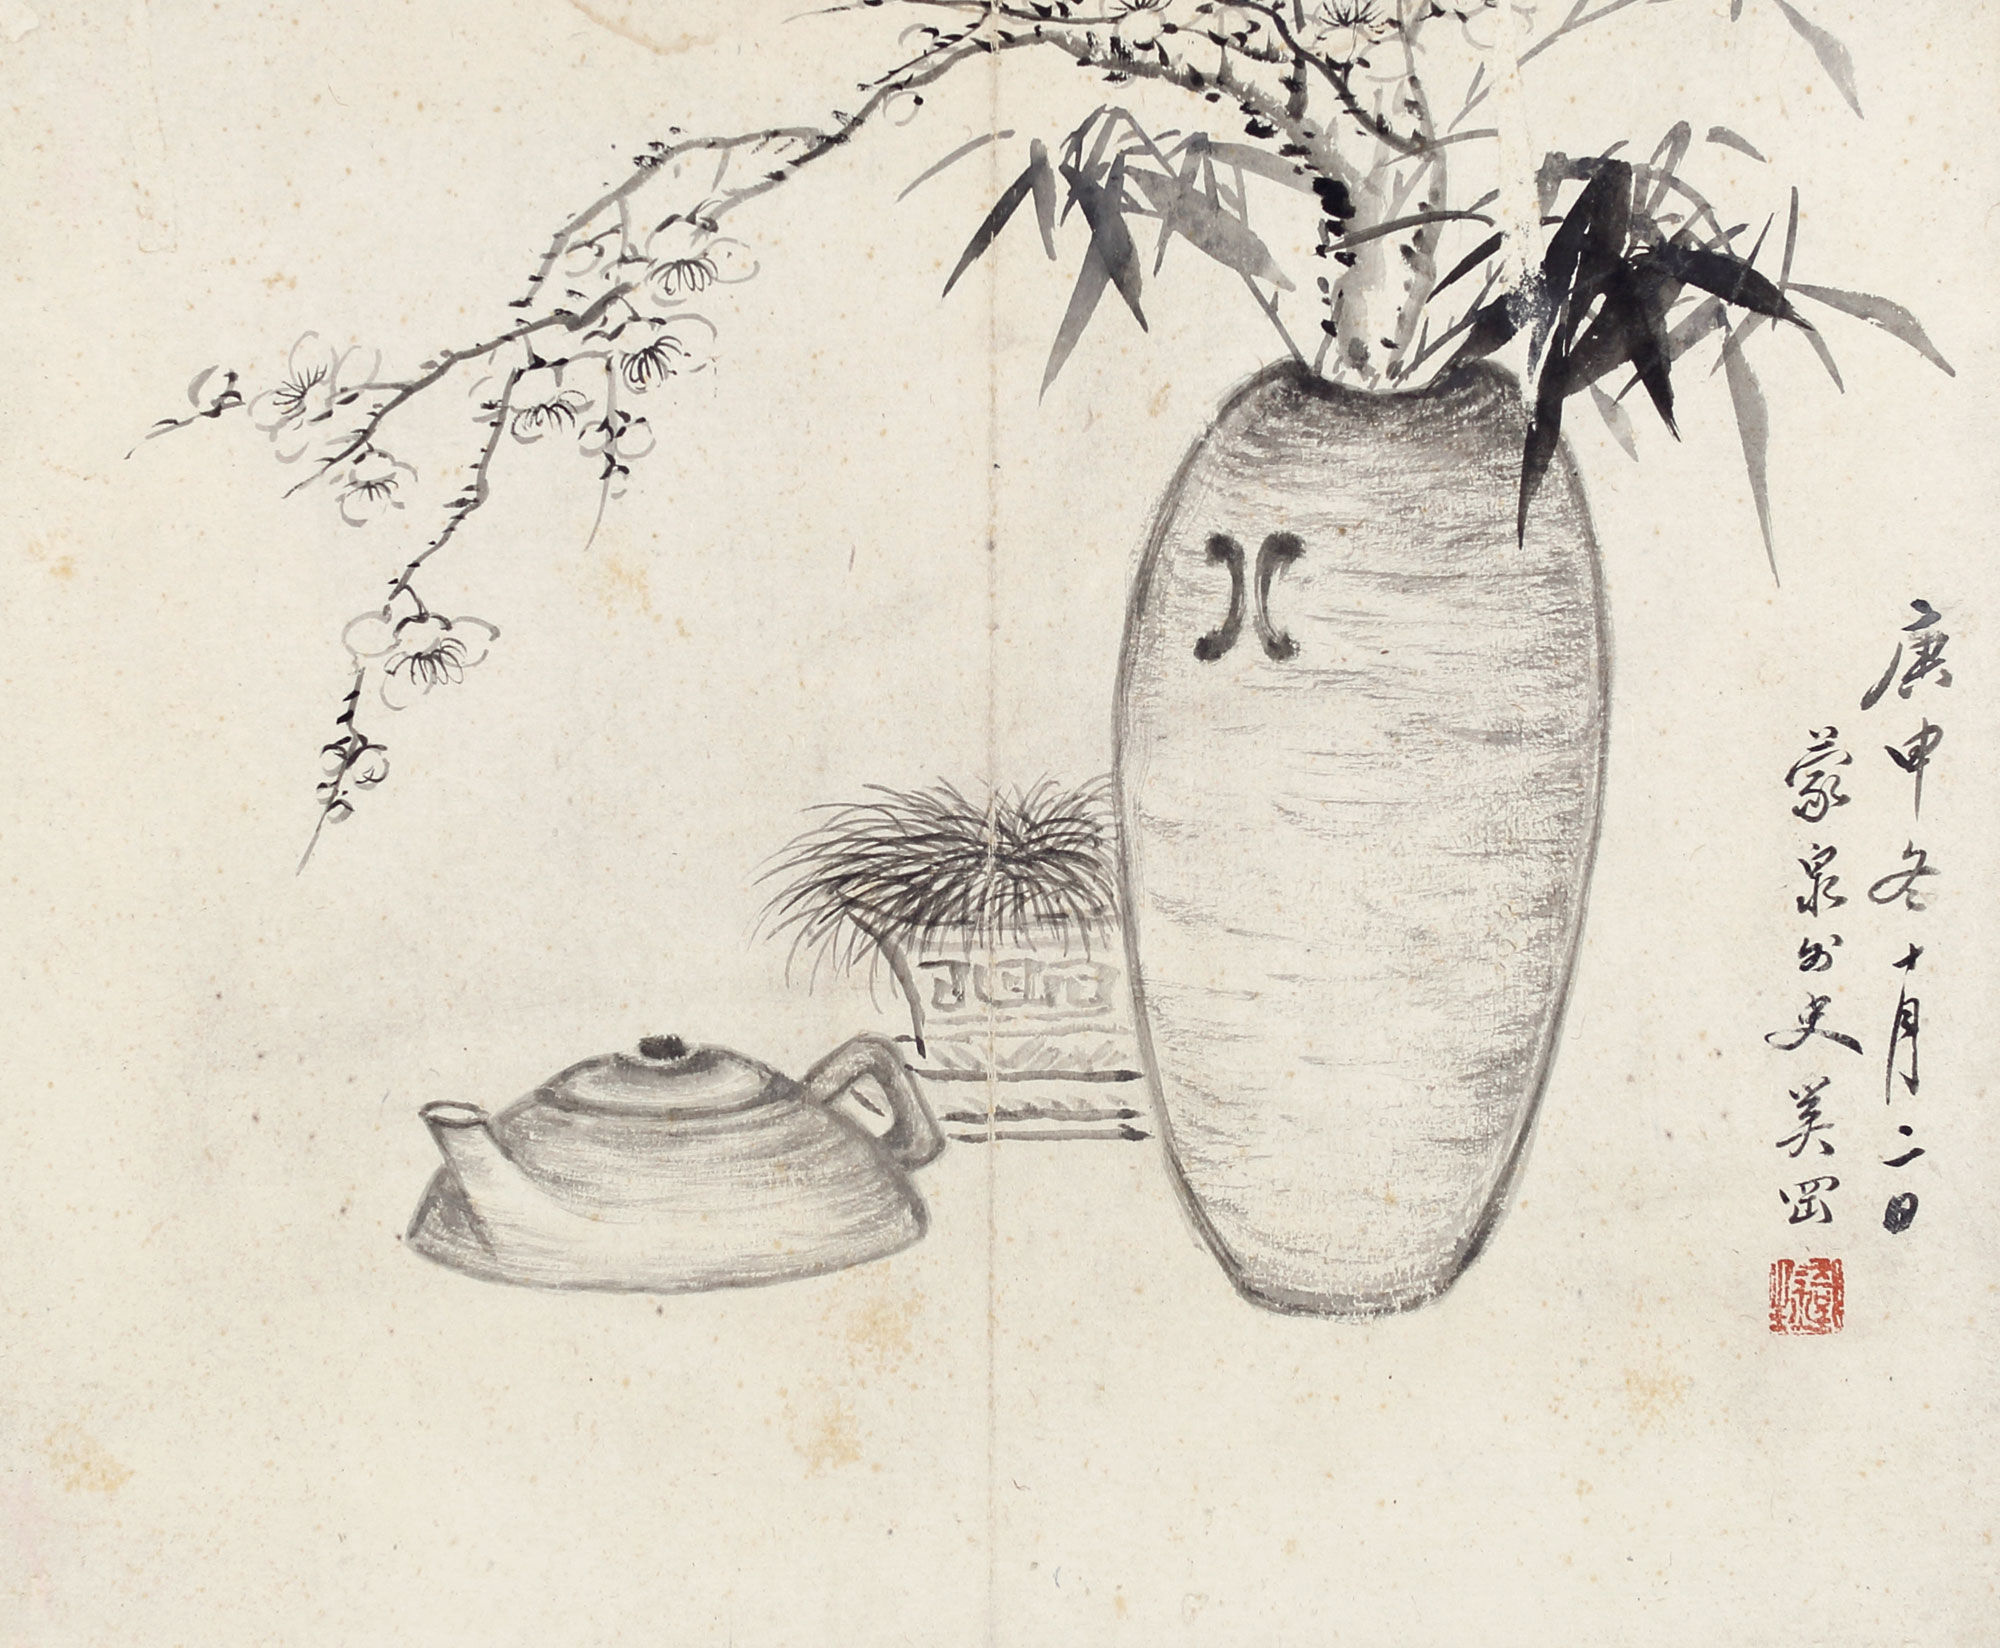 庚申冬十月二日
蒙泉外史奚岡